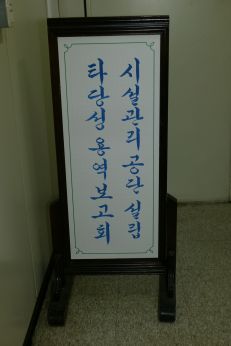 시설관리공단 설립
타당성 용역보고회